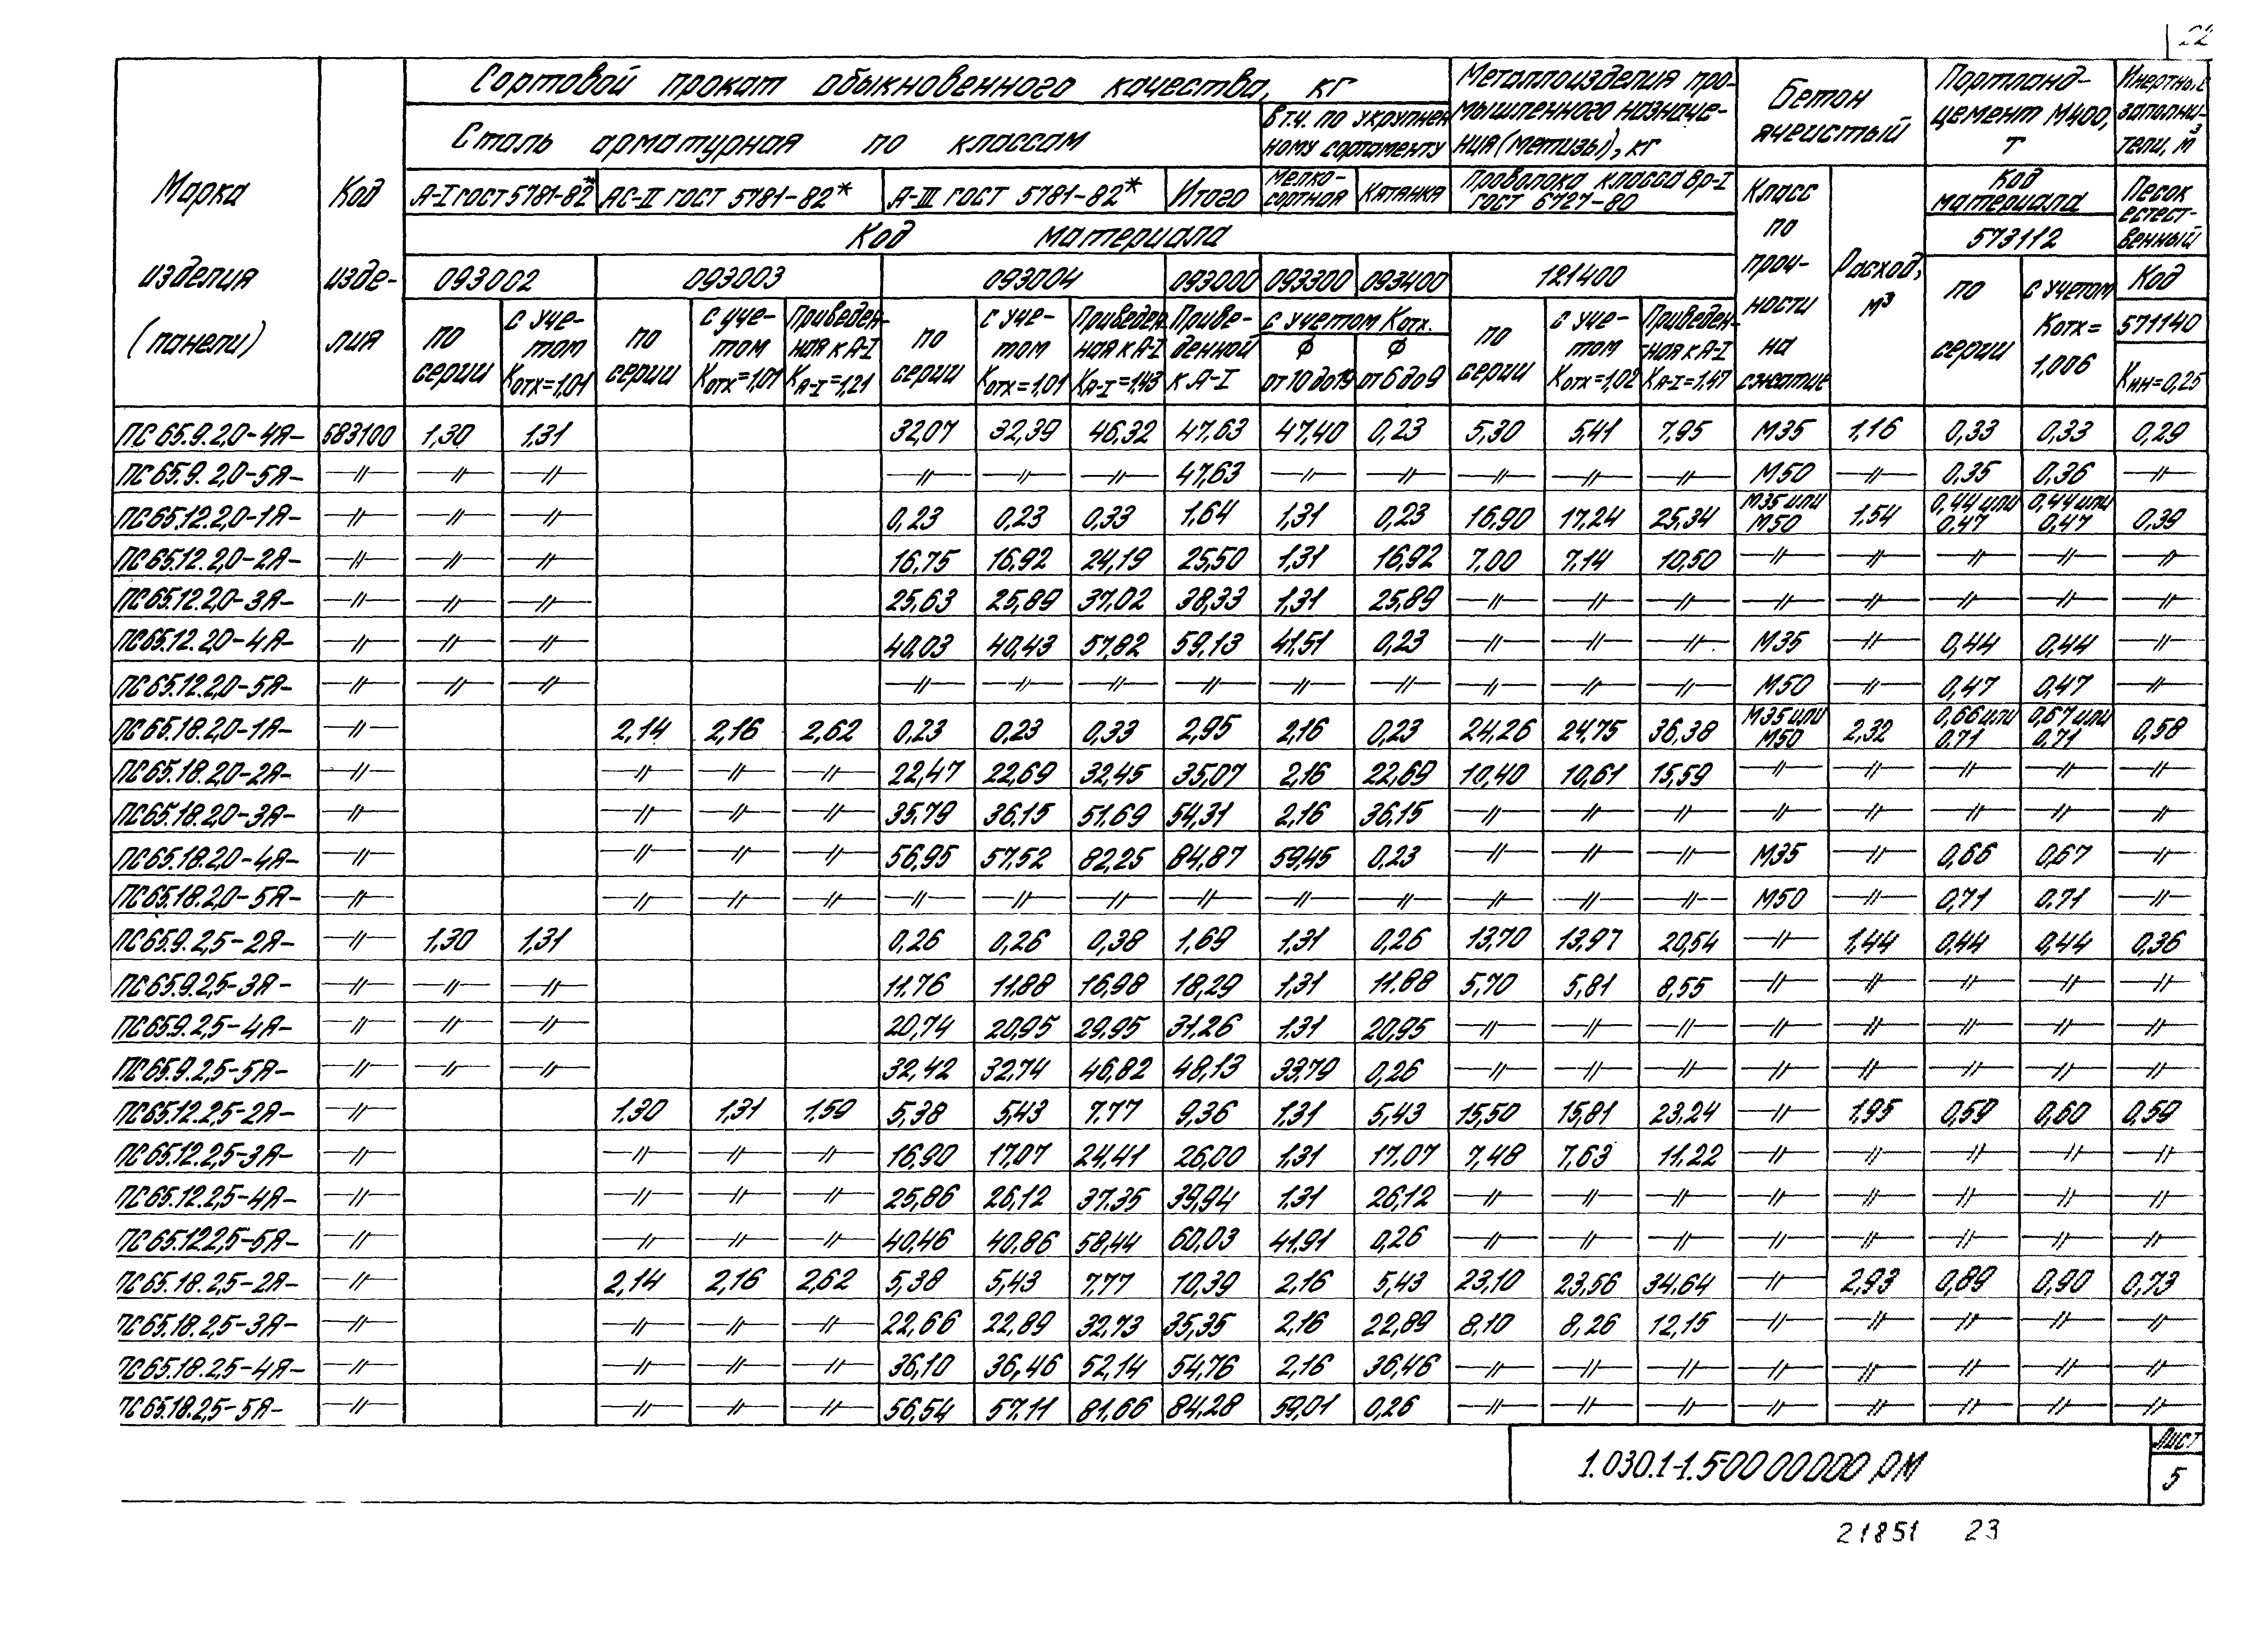 22
Сортовой прокат обыкновенного качества, кг
Металлоизделия про-
мышленного назначе-
ния (метизы), кг
Бетон
ячеистый
Портланд-
цемент М400,
т
Инертные
заполни-
тели, м³
Марка
изделия
(панели)
Код
изде-
лия
Сталь арматурная по классам
В т.ч. по укрупнен
ному сортаменту
А-I ГОСТ 5781-82* АС-II ГОСТ 5781-82* А-III ГОСТ 5781-82* Итого Мелко-
сортная Катанка
Проволока класса Вр-I
ГОСТ 6727-80
Класс
по
проч-
ности
на
сжатие
Расход,
м³
Код
материала
573112
Песок
естест-
венный
Код
571140
Кин=0,25
Код материала
093002 093003 093004 093000 093300 093400 121400
по
серии
с уче-
том
Котх=1,01
по
серии
с уче-
том
Котх=1,01
Приведен-
ная к А-I
КА-I=1,21
по
серии
с уче-
том
Котх=1,01
Приведен
ная к А-I
КА-I=1,43
Приве-
денной
к А-I
с учетом Котх.
Ф
от 10 до 19
Ф
от 6 до 9
по
серии
с уче-
том
Котх=1,02
Приведен-
ная к А-I
КА-I=1,47
по
серии
с учетом
Котх=
1,006
ПС 65.9.2,0-4Я- 583100 1,30 1,31 32,07 32,39 46,32 47,63 47,40 0,23 5,30 5,41 7,95 М35 1,16 0,33 0,33 0,29
ПС 65.9.2,0-5Я- –〃– –〃– –〃– –〃– –〃– –〃– 47,63 –〃– –〃– –〃– –〃– –〃– М50 –〃– 0,35 0,36 –〃–
ПС 65.12.2,0-1Я- –〃– –〃– –〃– 0,23 0,23 0,33 1,64 1,31 0,23 16,90 17,24 25,34 М35 или М50 1,54 0,44 или 0,47 0,44 или 0,47 0,39
ПС 65.12.2,0-2Я- –〃– –〃– –〃– 16,75 16,92 24,19 25,50 1,31 16,92 7,00 7,14 10,50 –〃– –〃– –〃– –〃– –〃–
ПС 65.12.2,0-3Я- –〃– –〃– –〃– 25,63 25,89 37,02 38,33 1,31 25,89 –〃– –〃– –〃– –〃– –〃– –〃– –〃– –〃–
ПС 65.12.2,0-4Я- –〃– –〃– –〃– 40,03 40,43 57,82 59,13 41,51 0,23 –〃– –〃– –〃– М35 –〃– 0,44 0,44 –〃–
ПС 65.12.2,0-5Я- –〃– –〃– –〃– –〃– –〃– –〃– –〃– –〃– –〃– –〃– –〃– –〃– М50 –〃– 0,47 0,47 –〃–
ПС 65.18.2,0-1Я- –〃– 2,14 2,16 2,62 0,23 0,23 0,33 2,95 2,16 0,23 24,26 24,75 36,38 М35 или М50 2,32 0,66 или 0,71 0,67 или 0,71 0,58
ПС 65.18.2,0-2Я- –〃– –〃– –〃– –〃– 22,47 22,69 32,45 35,07 2,16 22,69 10,40 10,61 15,59 –〃– –〃– –〃– –〃– –〃–
ПС 65.18.2,0-3Я- –〃– –〃– –〃– –〃– 35,79 36,15 51,69 54,31 2,16 36,15 –〃– –〃– –〃– –〃– –〃– –〃– –〃– –〃–
ПС 65.18.2,0-4Я- –〃– –〃– –〃– –〃– 56,95 57,52 82,25 84,87 59,45 0,23 –〃– –〃– –〃– М35 –〃– 0,66 0,67 –〃–
ПС 65.18.2,0-5Я- –〃– –〃– –〃– –〃– –〃– –〃– –〃– –〃– –〃– –〃– –〃– –〃– –〃– М50 –〃– 0,71 0,71 –〃–
ПС 65.9.2,5-2Я- –〃– 1,30 1,31 0,26 0,26 0,38 1,69 1,31 0,26 13,70 13,97 20,54 –〃– 1,44 0,44 0,44 0,36
ПС 65.9.2,5-3Я- –〃– –〃– –〃– 11,76 11,88 16,98 18,29 1,31 11,88 5,70 5,81 8,55 –〃– –〃– –〃– –〃– –〃–
ПС 65.9.2,5-4Я- –〃– –〃– –〃– 20,74 20,95 29,95 31,26 1,31 20,95 –〃– –〃– –〃– –〃– –〃– –〃– –〃– –〃–
ПС 65.9.2,5-5Я- –〃– –〃– –〃– 32,42 32,74 46,82 48,13 33,79 0,26 –〃– –〃– –〃– –〃– –〃– –〃– –〃– –〃–
ПС 65.12.2,5-2Я- –〃– 1,30 1,31 1,59 5,38 5,43 7,77 9,36 1,31 5,43 15,50 15,81 23,24 –〃– 1,95 0,59 0,60 0,59
ПС 65.12.2,5-3Я- –〃– –〃– –〃– –〃– 16,90 17,07 24,41 26,00 1,31 17,07 7,48 7,63 11,22 –〃– –〃– –〃– –〃– –〃–
ПС 65.12.2,5-4Я- –〃– –〃– –〃– –〃– 25,86 26,12 37,35 39,94 1,31 26,12 –〃– –〃– –〃– –〃– –〃– –〃– –〃– –〃–
ПС 65.12.2,5-5Я- –〃– –〃– –〃– –〃– 40,46 40,86 58,44 60,03 41,91 0,26 –〃– –〃– –〃– –〃– –〃– –〃– –〃– –〃–
ПС 65.18.2,5-2Я- –〃– 2,14 2,16 2,62 5,38 5,43 7,77 10,39 2,16 5,43 23,10 23,56 34,64 –〃– 2,93 0,89 0,90 0,73
ПС 65.18.2,5-3Я- –〃– –〃– –〃– –〃– 22,66 22,89 32,73 35,35 2,16 22,89 8,10 8,26 12,15 –〃– –〃– –〃– –〃– –〃–
ПС 65.18.2,5-4Я- –〃– –〃– –〃– –〃– 36,10 36,46 52,14 54,76 2,16 36,46 –〃– –〃– –〃– –〃– –〃– –〃– –〃– –〃–
ПС 65.18.2,5-5Я- –〃– –〃– –〃– –〃– 56,54 57,11 81,66 84,28 59,01 0,26 –〃– –〃– –〃– –〃– –〃– –〃– –〃– –〃–
1.030.1-1.5-00 00 00 00 РМ
Лист
5
21851 23